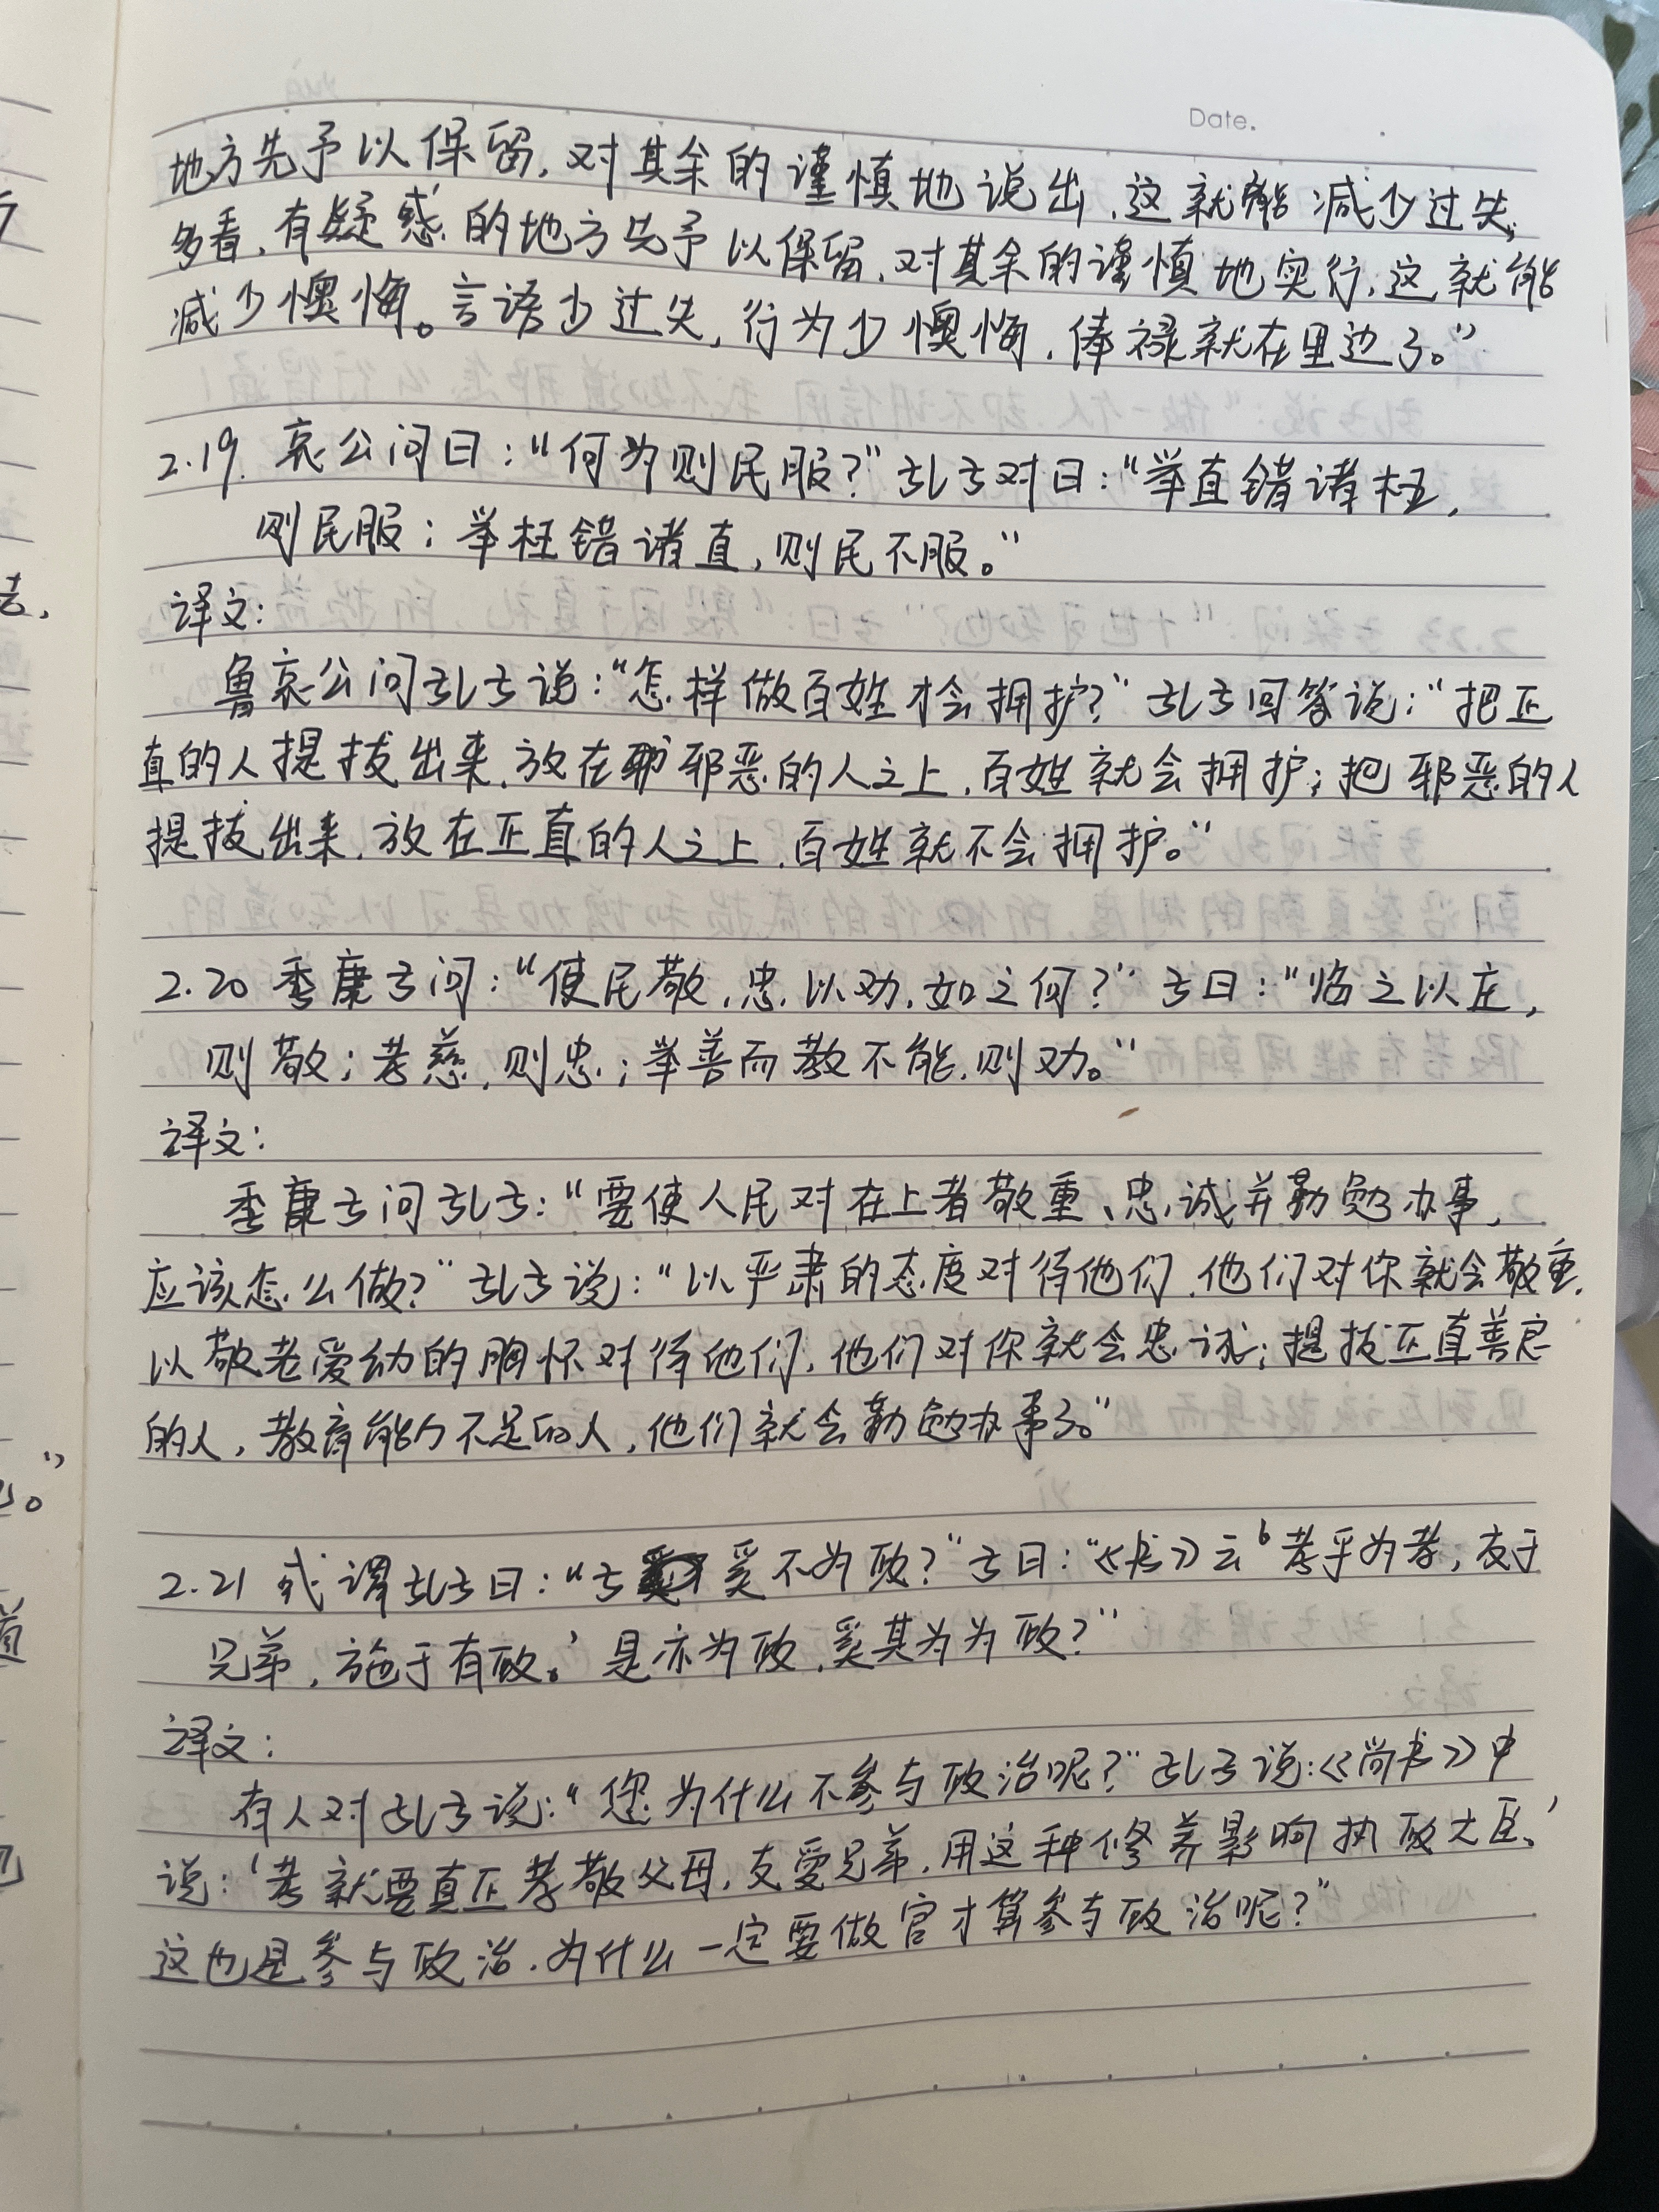 Date.
地方先予以保留,对其余的谨慎地说出,这就能减少过失;
多看,有疑惑的地方先予以保留,对其余的谨慎地实行,这就能
减少懊悔。言语少过失,行为少懊悔,俸禄就在里边了。”
2.19. 哀公问曰:“何为则民服?”孔子对曰:“举直错诸枉,
则民服;举枉错诸直,则民不服。”
译文:
鲁哀公问孔子说:“怎样做百姓才会拥护?”孔子回答说:“把正
直的人提拔出来,放在邪恶的人之上,百姓就会拥护;把邪恶的人
提拔出来,放在正直的人之上,百姓就不会拥护。”
2.20 季康子问:“使民敬,忠,以劝,如之何?”子曰:“临之以庄,
则敬;孝慈,则忠;举善而教不能,则劝。”
译文:
季康子问孔子:“要使人民对在上者敬重、忠诚并勤勉办事,
应该怎么做?”孔子说:“以严肃的态度对待他们,他们对你就会敬重,
以敬老爱幼的胸怀对待他们,他们对你就会忠诚;提拔正直善良
的人,教育能力不足的人,他们就会勤勉办事了。”
2.21 或谓孔子曰:“子奚不为政?”子曰:“《书》云‘孝乎为孝,友于
兄弟,施于有政。’是亦为政,奚其为为政?”
译文:
有人对孔子说:“您为什么不参与政治呢?”孔子说:《尚书》中
说:‘孝就要真正孝敬父母,友爱兄弟,用这种修养影响执政大臣,’
这也是参与政治,为什么一定要做官才算参与政治呢?”